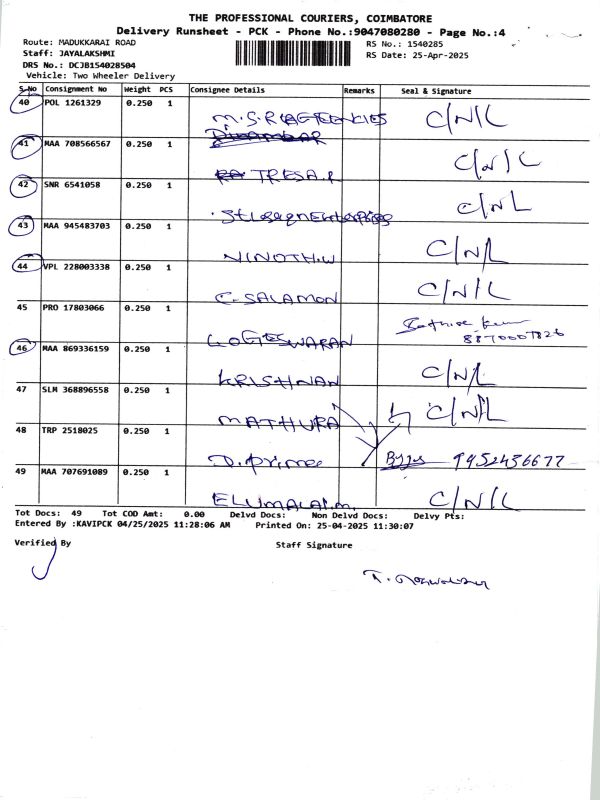 THE PROFESSIONAL COURIERS, COIMBATORE
Delivery Runsheet - PCK - Phone No.:9047080280 - Page No.:4
Route: MADUKKARAI ROAD RS No.: 1540285
Staff: JAYALAKSHMI RS Date: 25-Apr-2025
DRS No.: DCJB154028504
Vehicle: Two Wheeler Delivery
S.No Consignment No Weight PCS Consignee Details Remarks Seal & Signature
40 POL 1261329 0.250 1 M.S.R AGENCIES C/N/L
41 MAA 708566567 0.250 1 TRESA.P C/N/L
42 SNR 6541058 0.250 1 St Joseph Enterprises C/N/L
43 MAA 945483703 0.250 1 VINOTH.W C/N/L
44 VPL 228003338 0.250 1 C.SALAMON C/N/L
45 PRO 17803066 0.250 1 LOGESWARAN
46 MAA 869336159 0.250 1 KRISHNAN C/N/L
47 SLM 368896558 0.250 1 MATHURA C/N/L
48 TRP 2518025 0.250 1 D.Prince 9952436677
49 MAA 707691089 0.250 1 ELUMALAI.M. C/N/L
Tot Docs: 49 Tot COD Amt: 0.00 Delvd Docs: Non Delvd Docs: Delvy Pts:
Entered By :KAVIPCK 04/25/2025 11:28:06 AM Printed On: 25-04-2025 11:30:07
Verified By Staff Signature